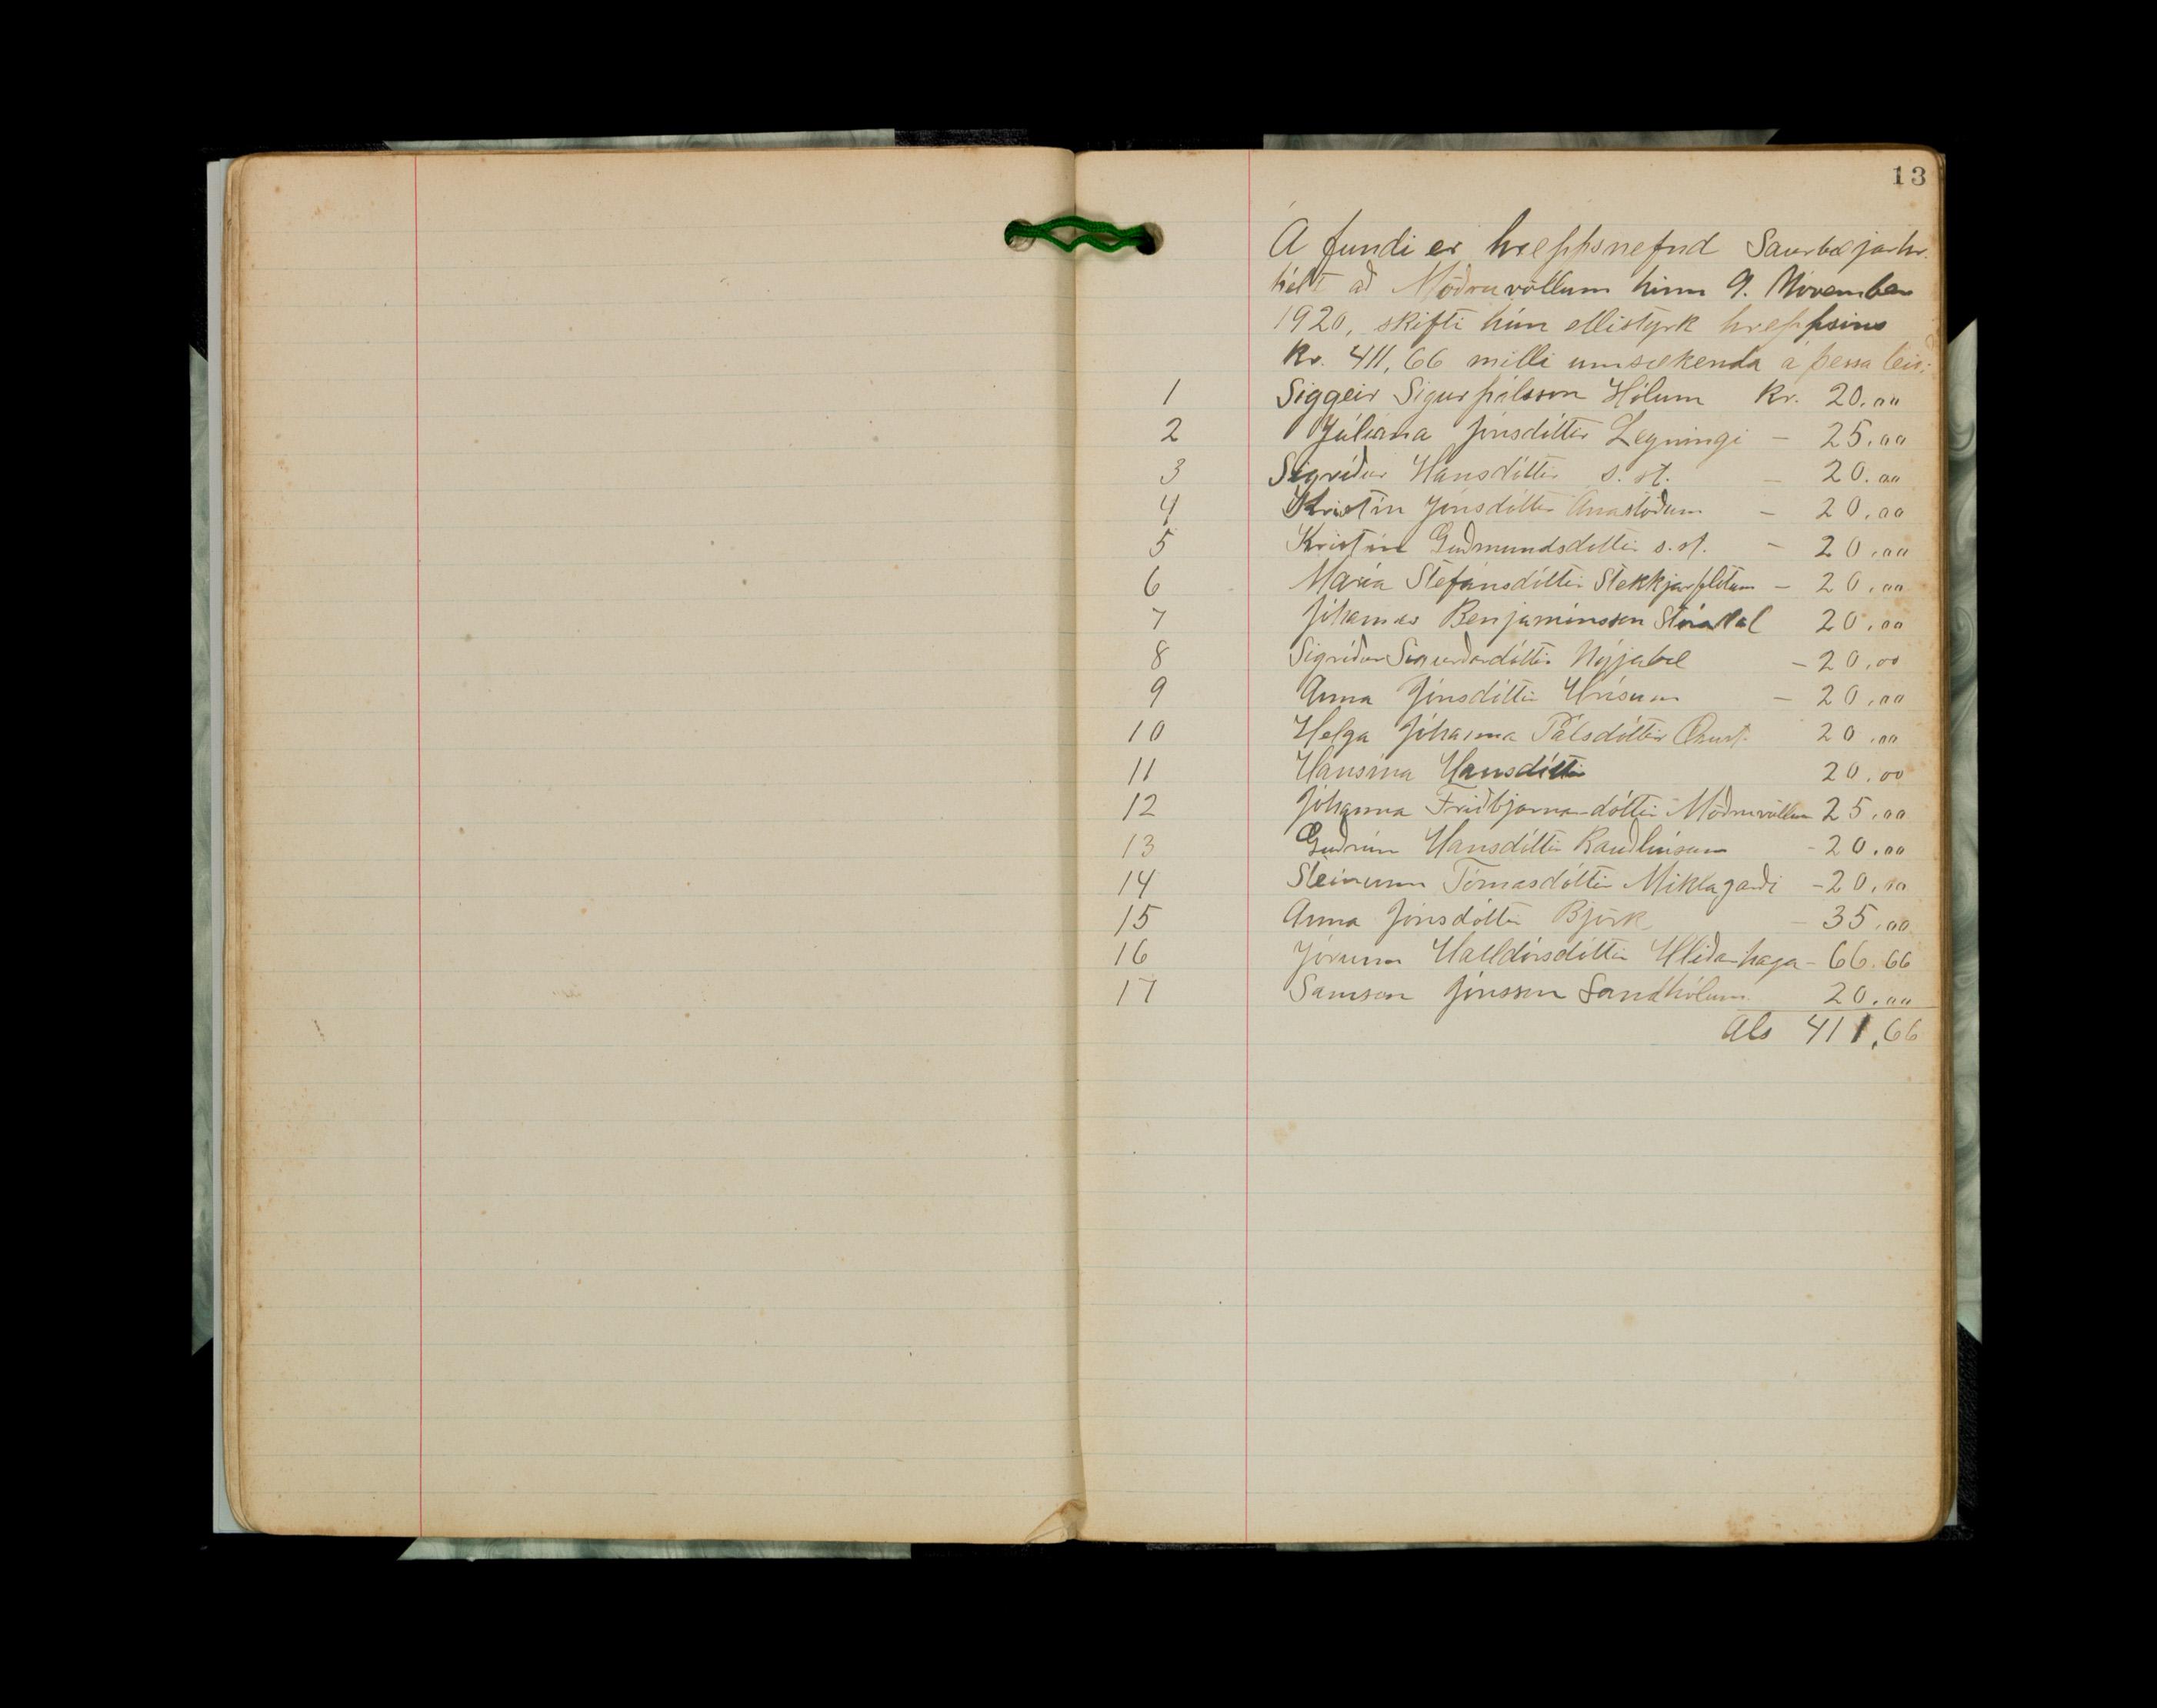 13
Á fundi er hreppsnefnd Saurbæjarhr.
hélt að Möðruvöllum hinn 9. Nóvember
1920, skifti hún ellistyrk hreppsins
kr. 411,66 milli umsækenda á þessa leið:
1 Siggeir Sigurpálsson Hólum kr. 20.00
2 Júlíana Jónsdóttir Leyningi - 25.00
3 Sigríður Hansdóttir s. st. - 20.00
4 Kristín Jónsdóttir Arnastöðum - 20.00
5 Kristín Guðmundsdóttir s. st. - 20.00
6 María Stefánsdóttir Stekkjarflötum - 20.00
7 Jóhannes Benjamínsson Stóradal 20.00
8 Sigríður Sigurðardóttir Nýjabæ - 20.00
9 Anna Jónsdóttir Hrísum - 20.00
10 Helga Jóhanna Pálsdóttir 20.00
11 Hansína Hansdóttir 20.00
12 Jóhanna Friðbjarnardóttir Möðruvöllum 25.00
13 Guðrún Hansdóttir Rauðhúsum - 20.00
14 Steinunn Tómasdóttir Miklagarði - 20.00
15 Anna Jónsdóttir Björk - 35.00
16 Jórunn Halldórsdóttir Hlíðarhaga - 66.66
17 Samson Jónsson Sandhólum 20.00
Als 411,66